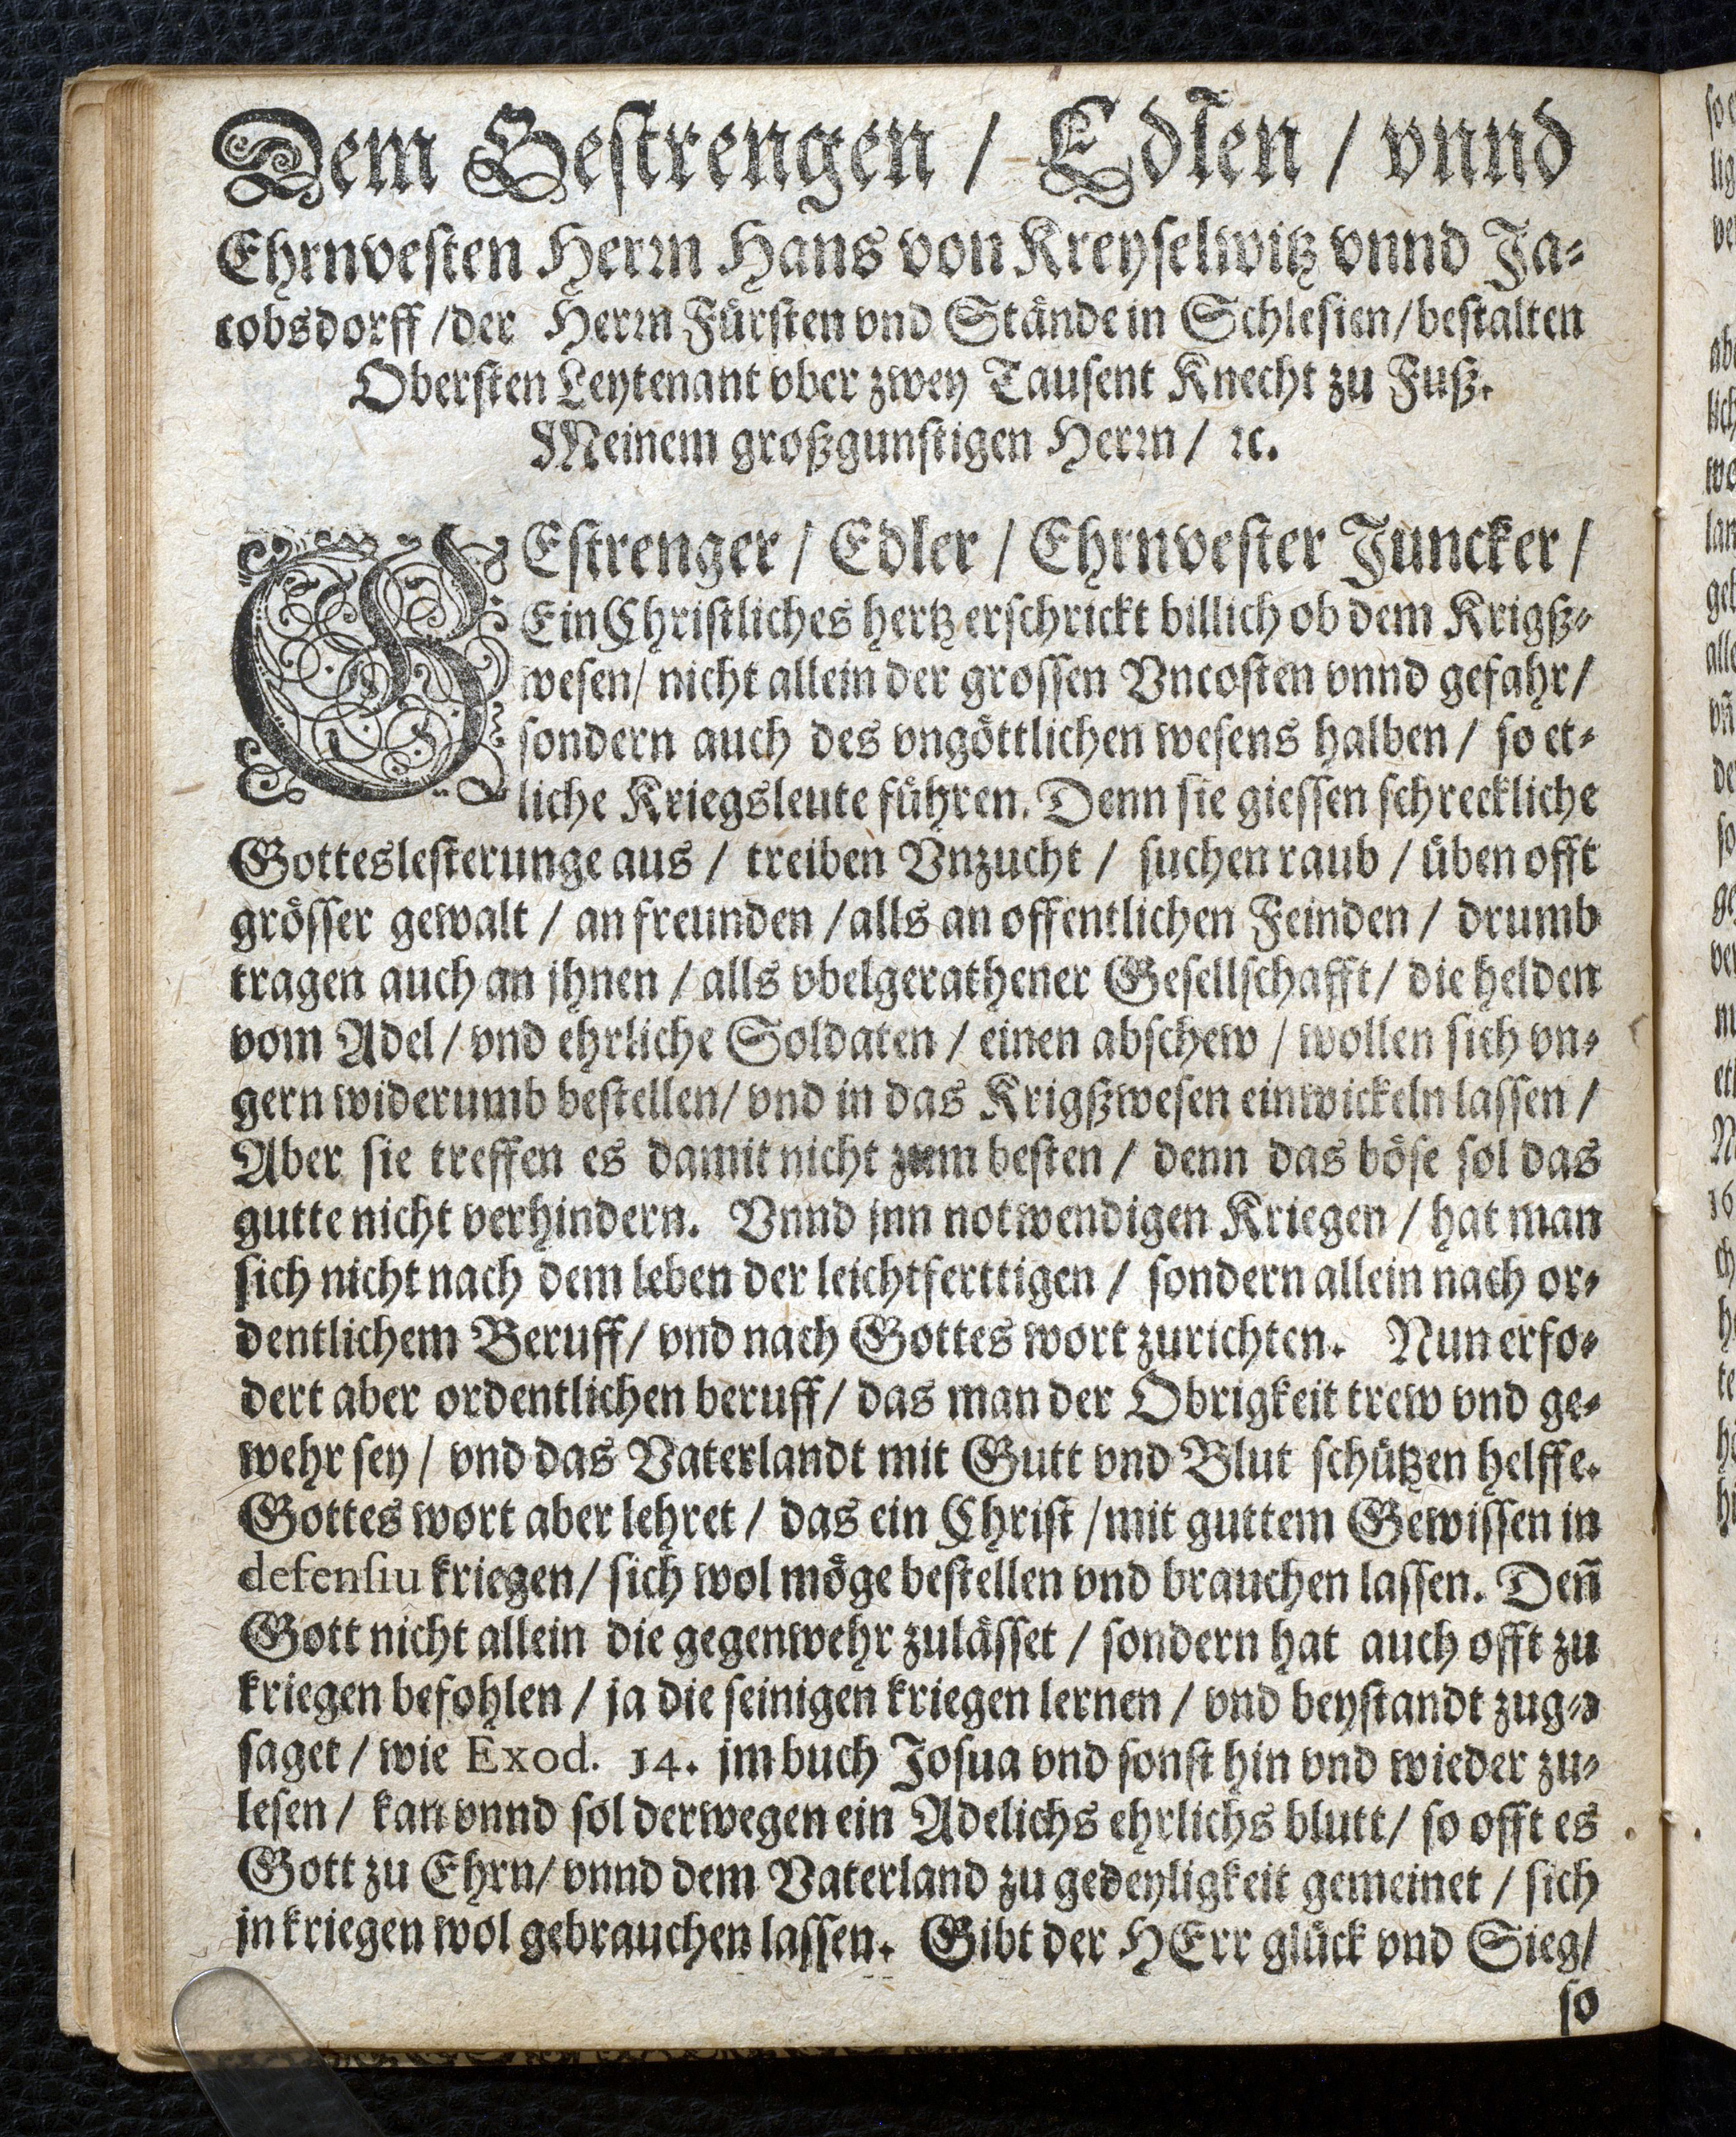 Dem Gestrengen / Edlen / vnnd
Ehrnvesten Herrn Hans von Kreyselwitz vnnd Ja⸗
cobsdorff / der Herrn Fürsten vnd Stände in Schlesien / bestalten
Obersten Leytenant vber zwey Tausent Knecht zu Fuß.
Meinem großgunstigen Herrn / ꝛc.
GEstrenger / Edler / Ehrnvester Juncker /
Ein Christliches hertz erschrickt billich ob dem Krigß⸗
wesen / nicht allein der grossen Vncosten vnnd gefahr /
sondern auch des vngöttlichen wesens halben / so et⸗
liche Kriegsleute führen. Denn sie giessen schreckliche
Gotteslesterunge aus / treiben Vnzucht / suchen raub / üben offt
grösser gewalt / an freunden / alls an offentlichen Feinden / drumb
tragen auch an jhnen / alls vbelgerathener Gesellschafft / die helden
vom Adel / vnd ehrliche Soldaten / einen abschew / wollen sich vn⸗
gern widerumb bestellen / vnd in das Krigßwesen einwickeln lassen /
Aber sie treffen es damit nicht zum besten / denn das böse sol das
gutte nicht verhindern. Vnnd jnn notwendigen Kriegen / hat man
sich nicht nach dem leben der leichtferttigen / sondern allein nach or⸗
dentlichem Beruff / vnd nach Gottes wort zurichten. Nun erfo⸗
dert aber ordentlichen beruff / das man der Obrigkeit trew vnd ge⸗
wehr sey / vnd das Vaterlandt mit Gutt vnd Blut schützen helffe.
Gottes wort aber lehret / das ein Christ / mit guttem Gewissen in
defensiu kriegen / sich wol möge bestellen vnd brauchen lassen. Deñ
Gott nicht allein die gegenwehr zulässet / sondern hat auch offt zu
kriegen befohlen / ja die seinigen kriegen lernen / vnd beystandt zuge⸗
saget / wie Exod. 14. jm buch Josua vnd sonst hin vnd wieder zu⸗
lesen / kan vnnd sol derwegen ein Adelichs ehrlichs blutt / so offt es
Gott zu Ehrn / vnnd dem Vaterland zu gedeyligkeit gemeinet / sich
jn kriegen wol gebrauchen lassen. Gibt der HErr glück vnd Sieg /
so